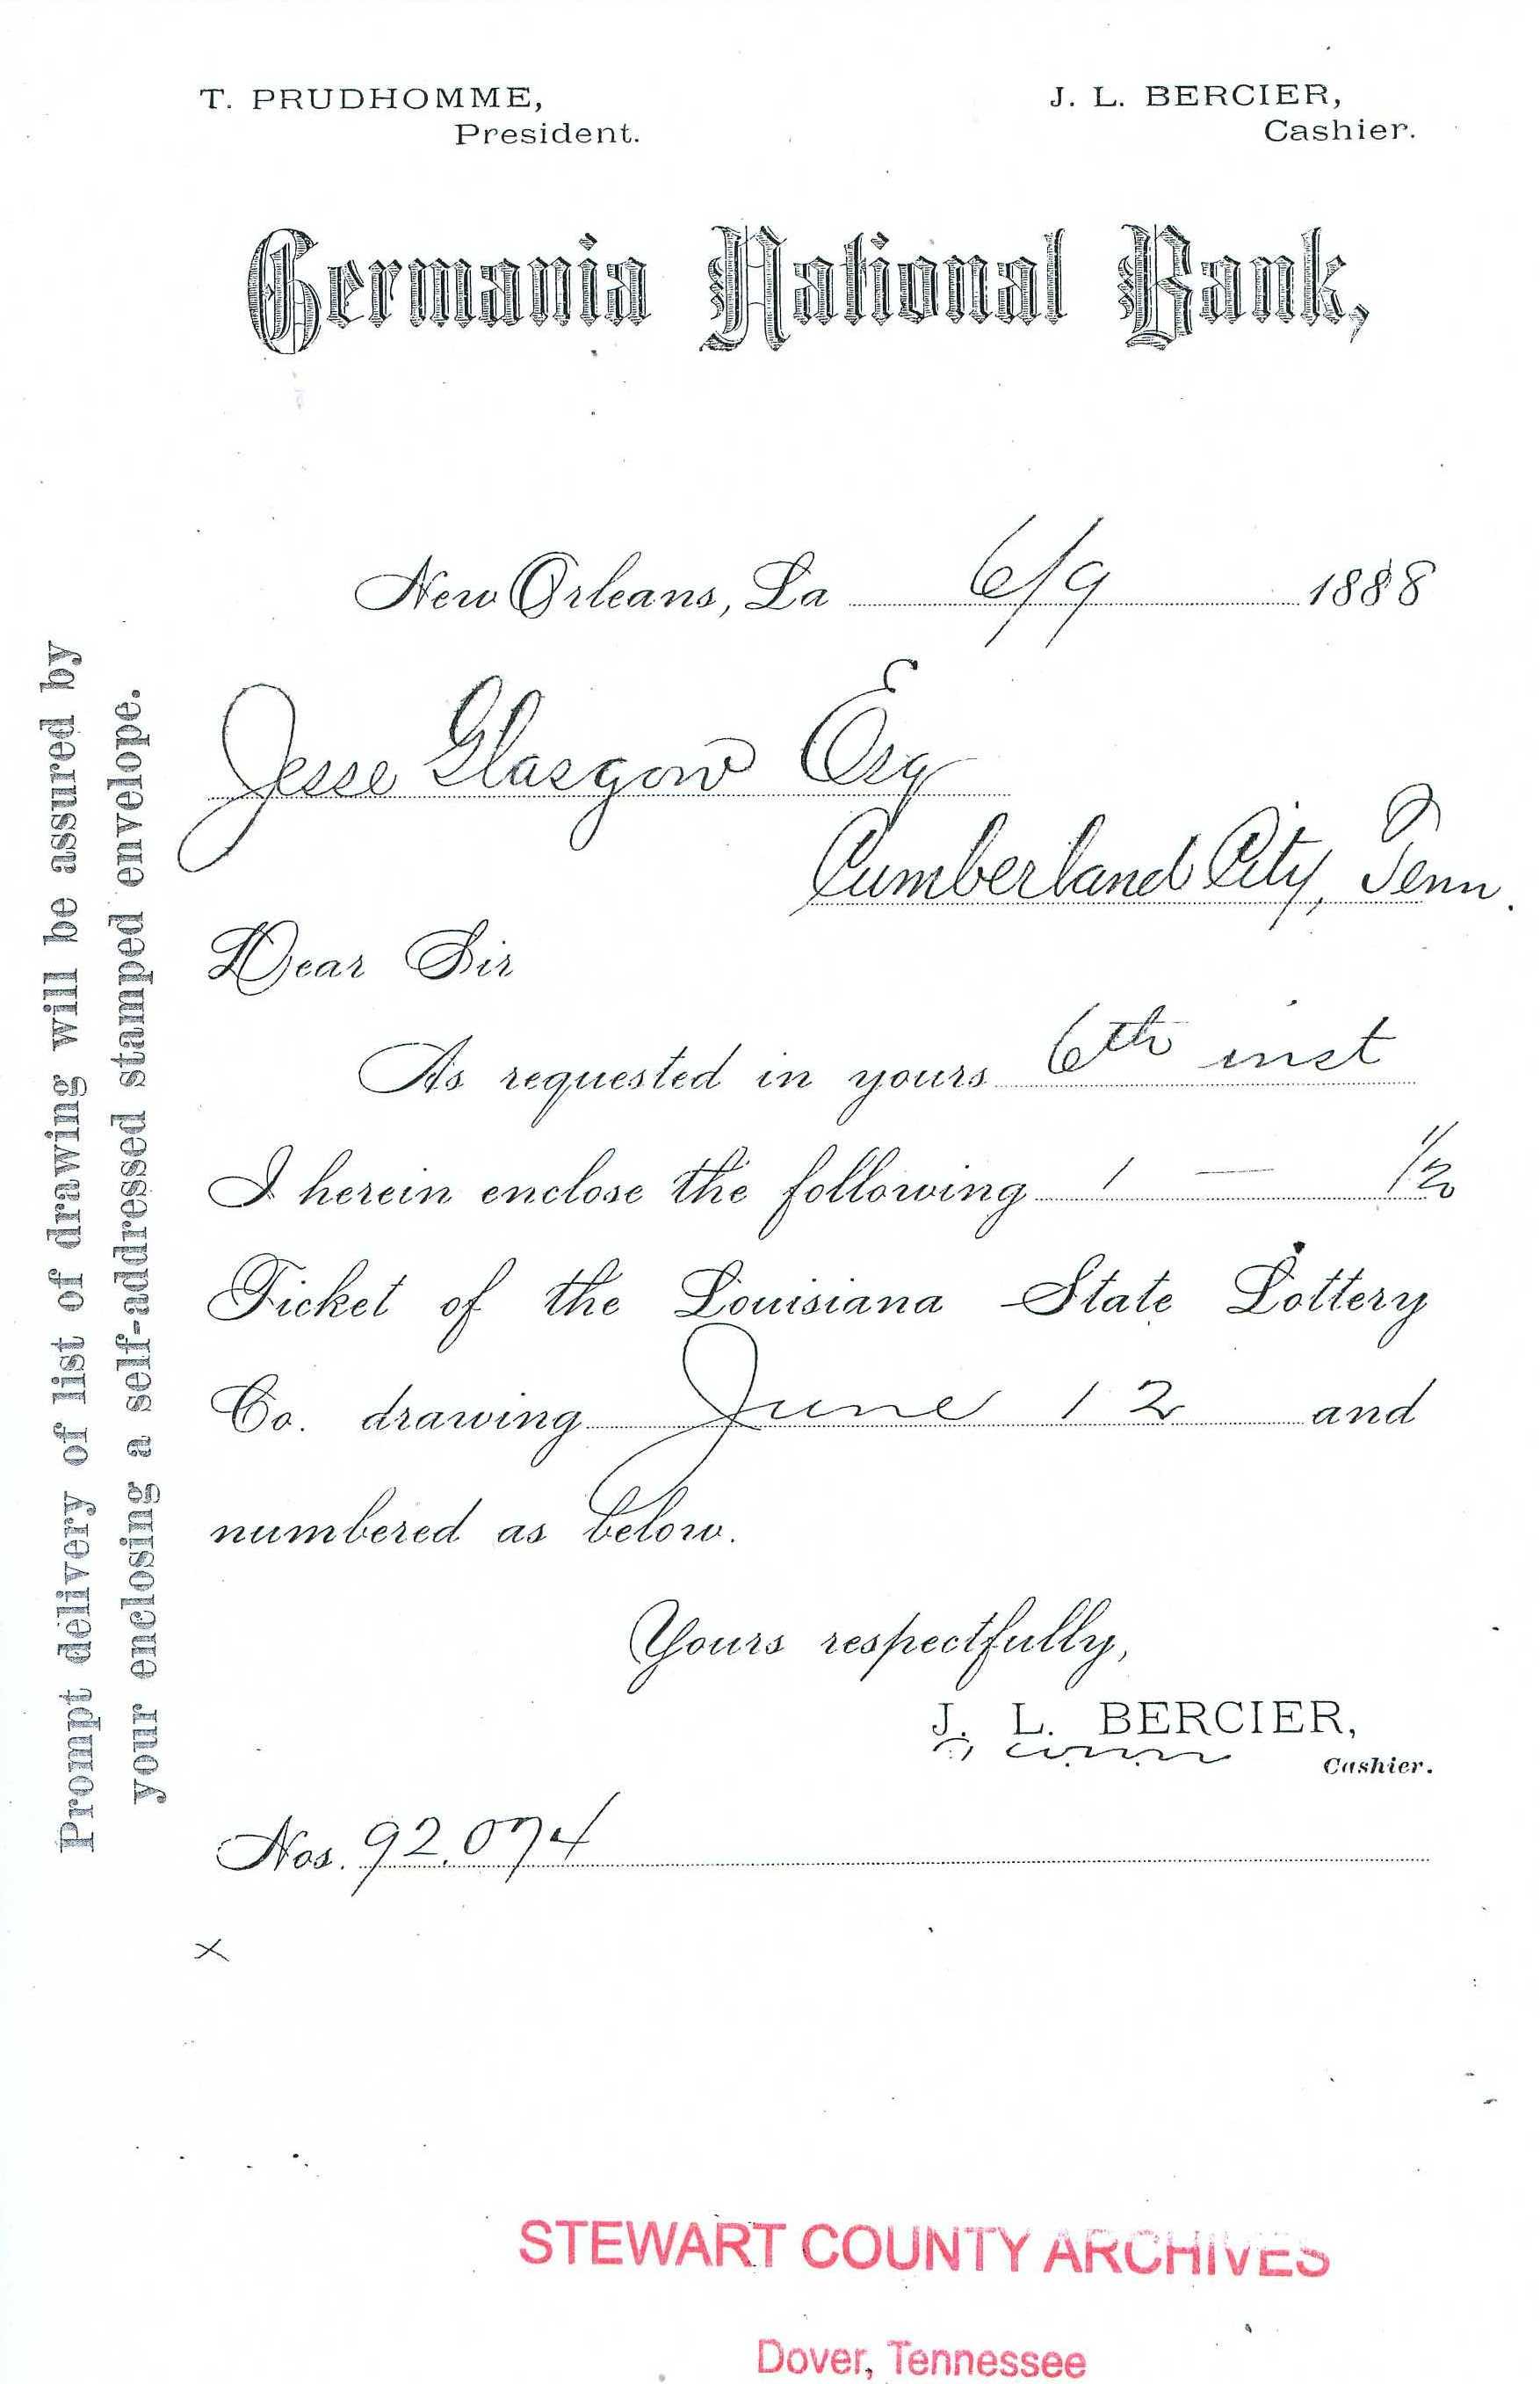 T. PRUDHOMME,
President.
J. L. BERCIER,
Cashier.
Germania National Bank,
New Orleans, La 6/9 1888
Jesse Glasgow Esq
Cumberland City, Tenn.
Dear Sir
As requested in yours 6th inst
I herein enclose the following 1 — 1/2
Ticket of the Louisiana State Lottery
Co. drawing June 12 and
numbered as below.
Yours respectfully,
J. L. BERCIER,
Cashier.
Nos. 92.074
x
Prompt delivery of list of drawing will be assured by
your enclosing a self-addressed stamped envelope.
STEWART COUNTY ARCHIVES
Dover, Tennessee